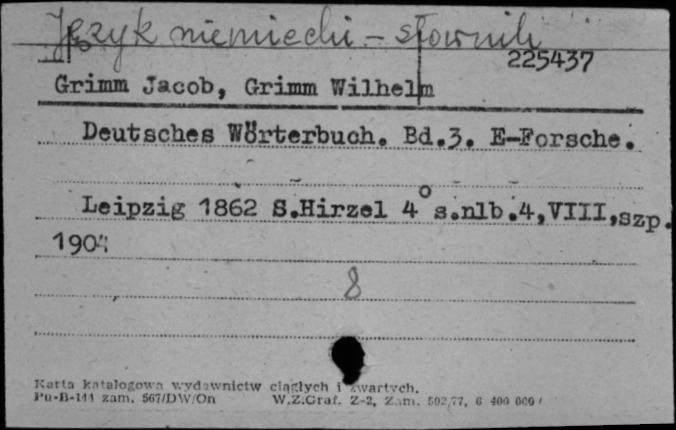 Język niemiecki - słownik
225437
Grimm Jacob, Grimm Wilhelm
Deutsches Wörterbuch. Bd.3. E-Forsche.
Leipzig 1862 S.Hirzel 4° s.nlb.4,VIII,szp.
1904
8
Karta katalogowa wydawnictw ciągłych i zwartych.
Pu-B-144 zam. 567/DW/On W.Z.Graf. Z-2, Zam. 502/77, 6 400 000